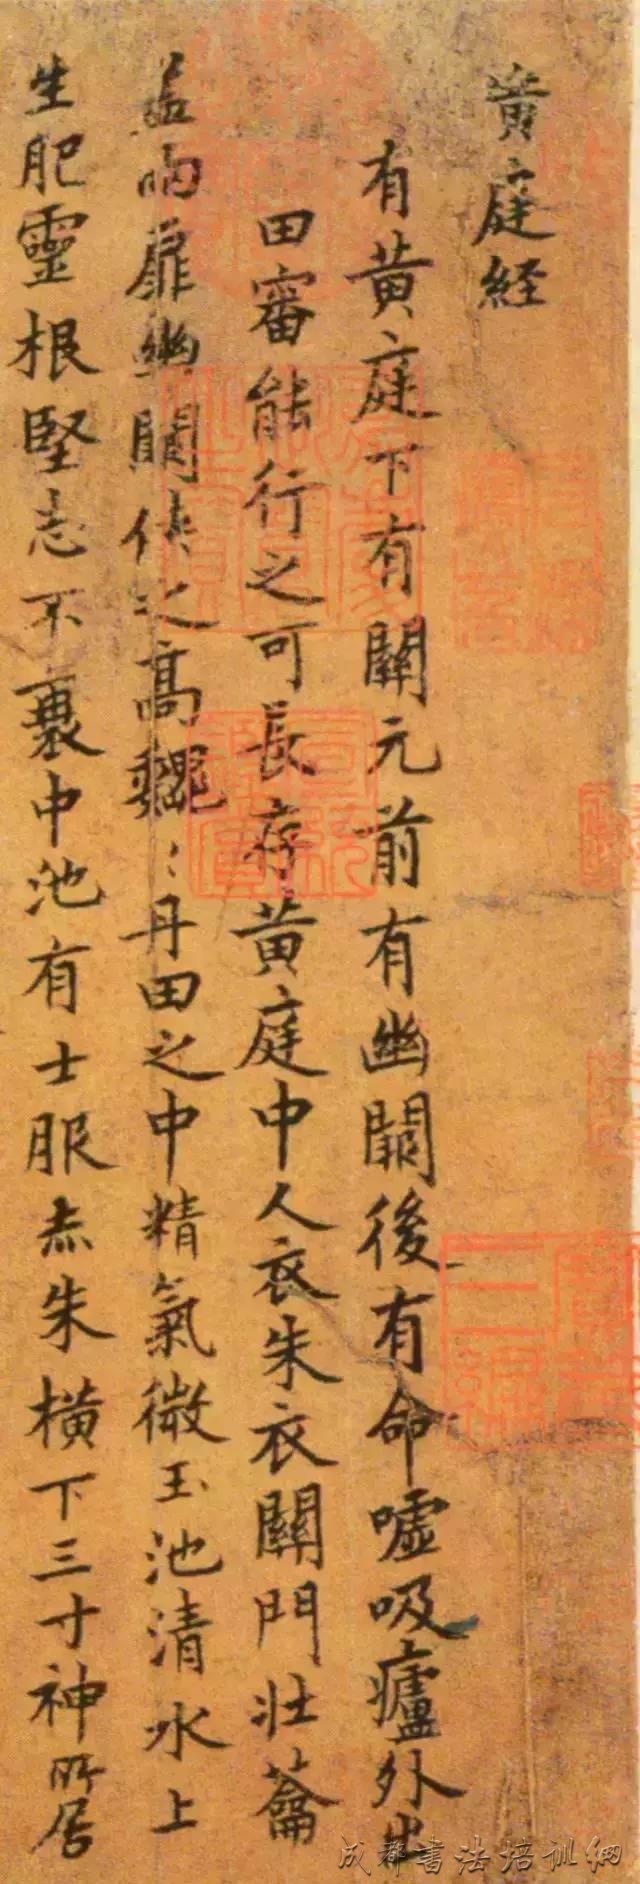 黃庭経
有黄庭下有關元前有幽闕後有命噓吸廬外出
田審能行之可長存黄庭中人衣朱衣關門壮蘥
盖兩扉幽闕俠之高巍〻丹田之中精氣微玉池清水上
生肥靈根堅志不衰中池有士服赤朱横下三寸神所居
成都書法培训網